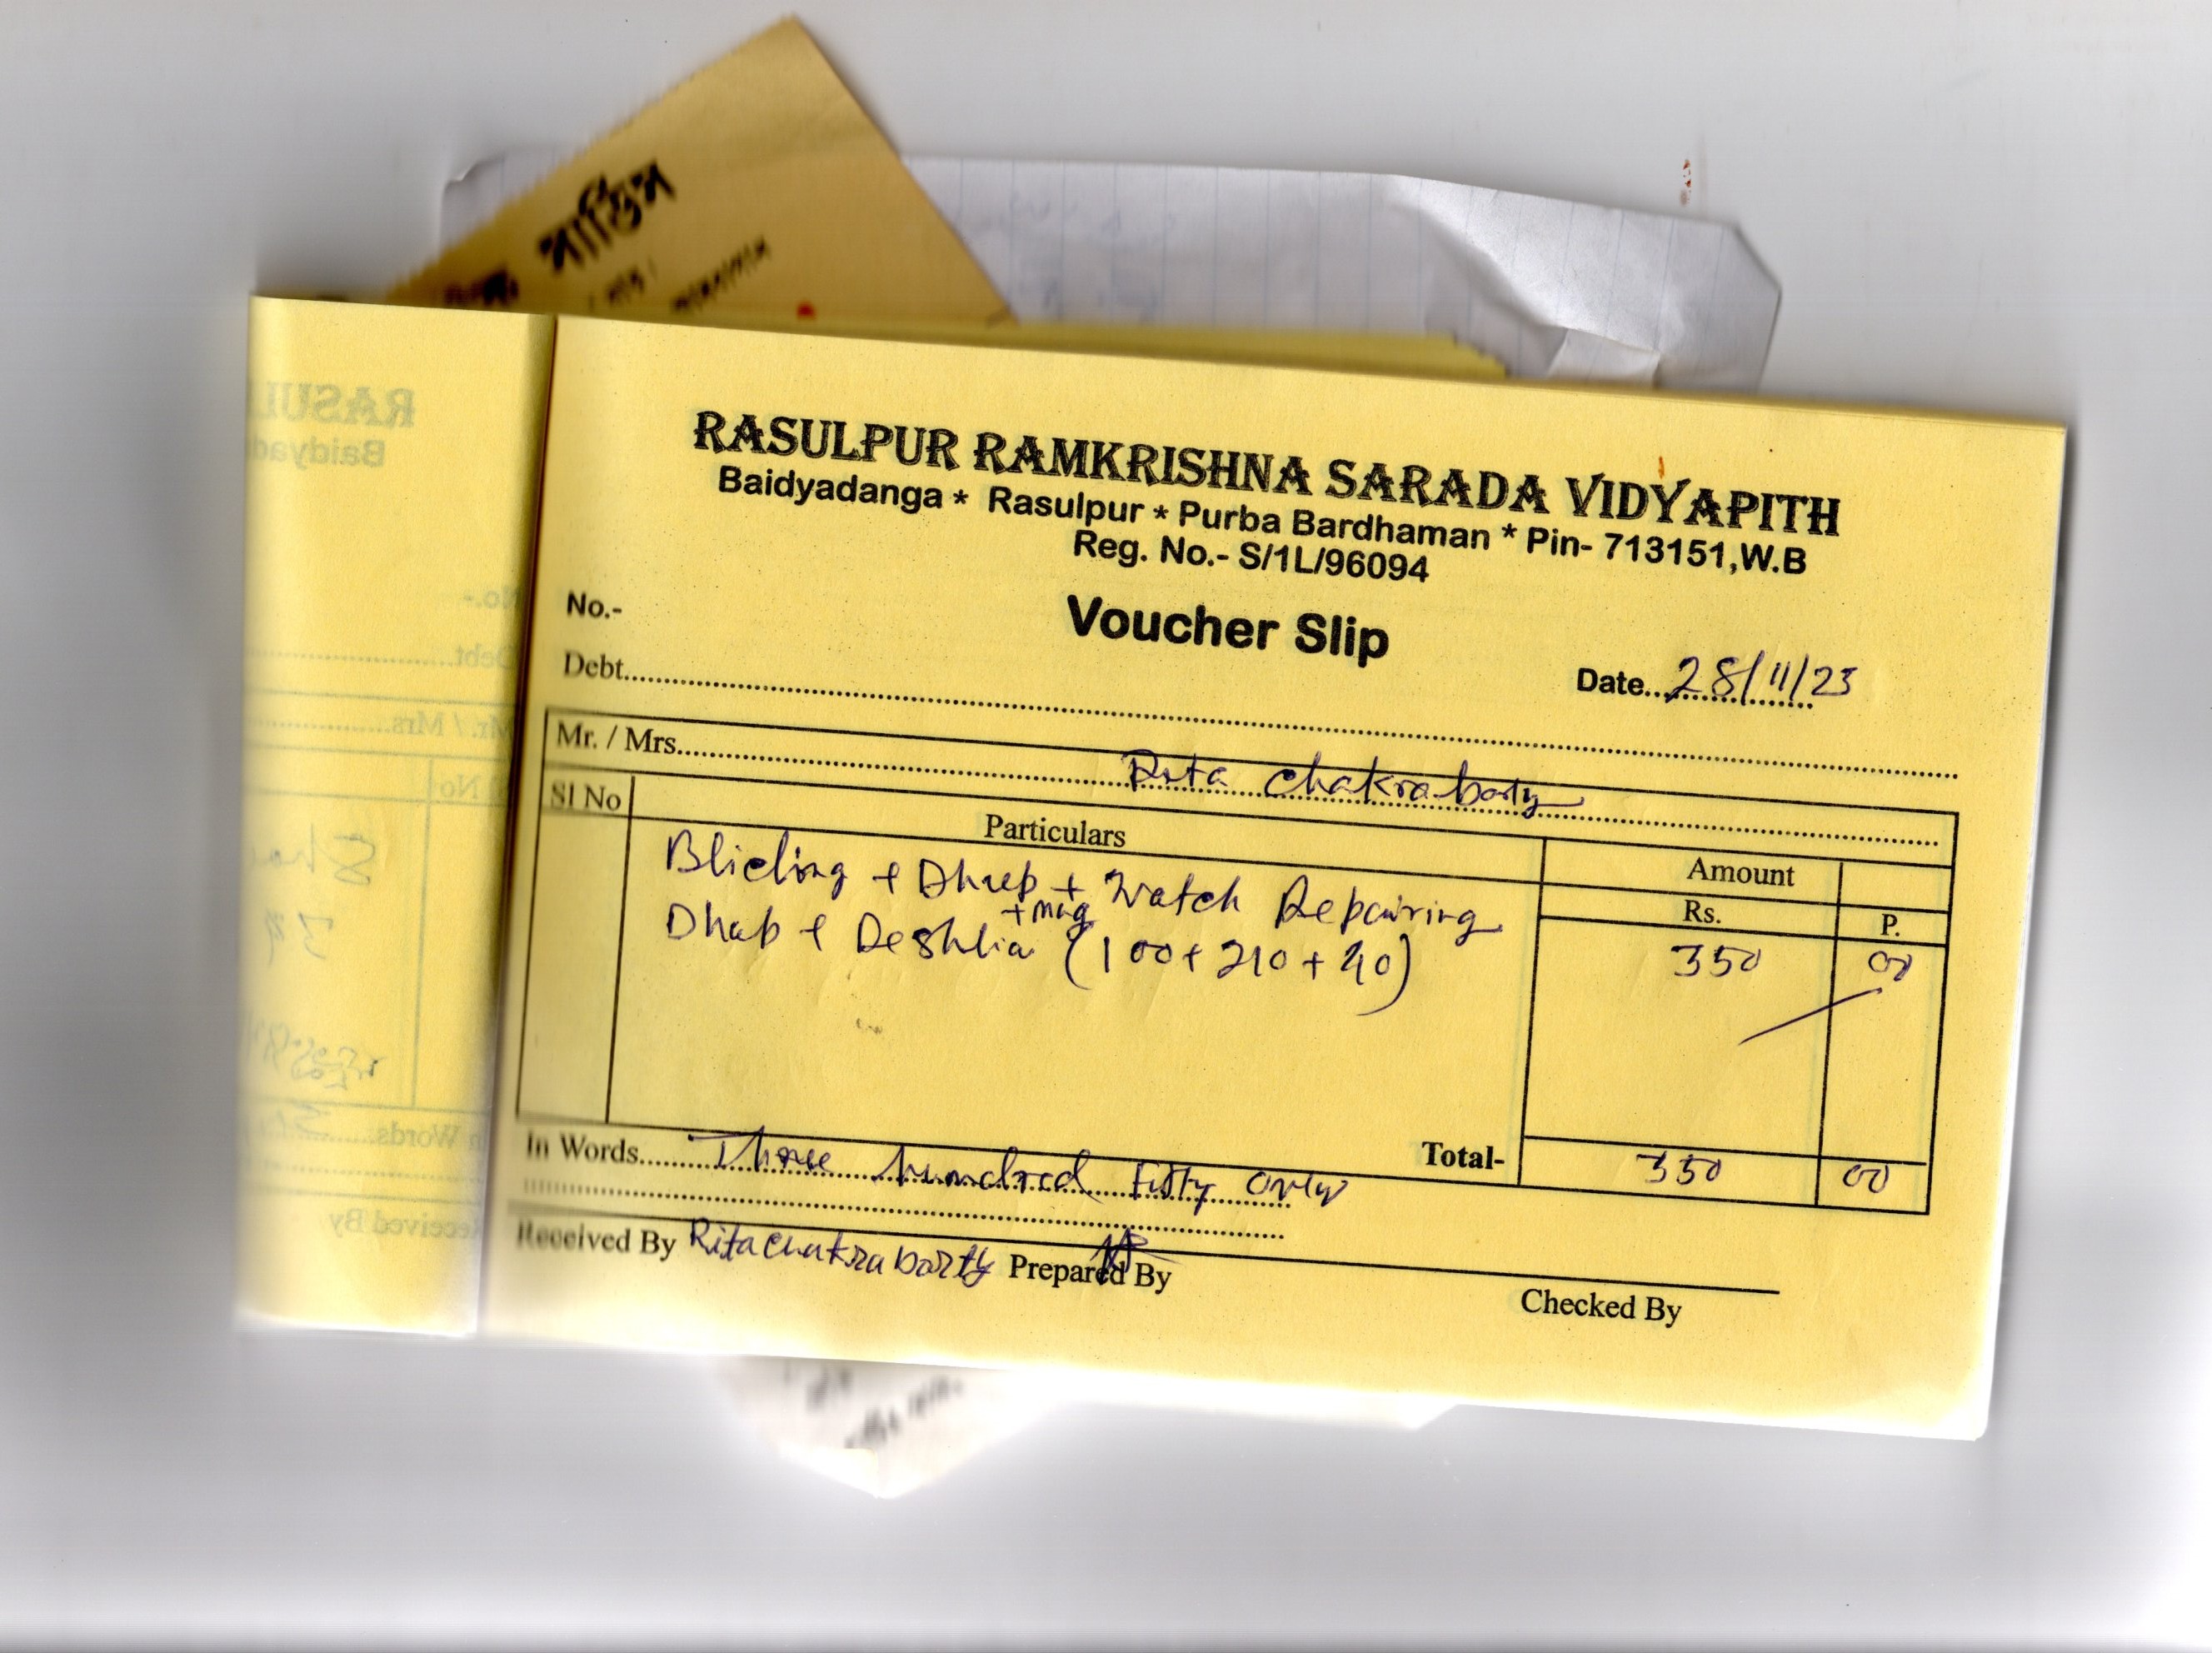 সার্ভিস
RASULPUR RAMKRISHNA SARADA VIDYAPITH
Baidyadanga * Rasulpur * Purba Bardhaman * Pin- 713151,W.B
Reg. No.- S/1L/96094
No.-
Voucher Slip
Debt
Date 28/11/23
Mr. / Mrs. Rita Chakraborty
Sl No Particulars Amount
Rs. P.
+ Dhup + Watch Repairing 350 00
+ mug
Dhap + Deshlia (100+210+40)
In Words Three hundred Fifty only Total- 350 00
Received By Rita Chakraborty Prepared By
Checked By
RASUL
Baidyad
Debt
Mr. / Mrs
Sl No
In Words
Received By